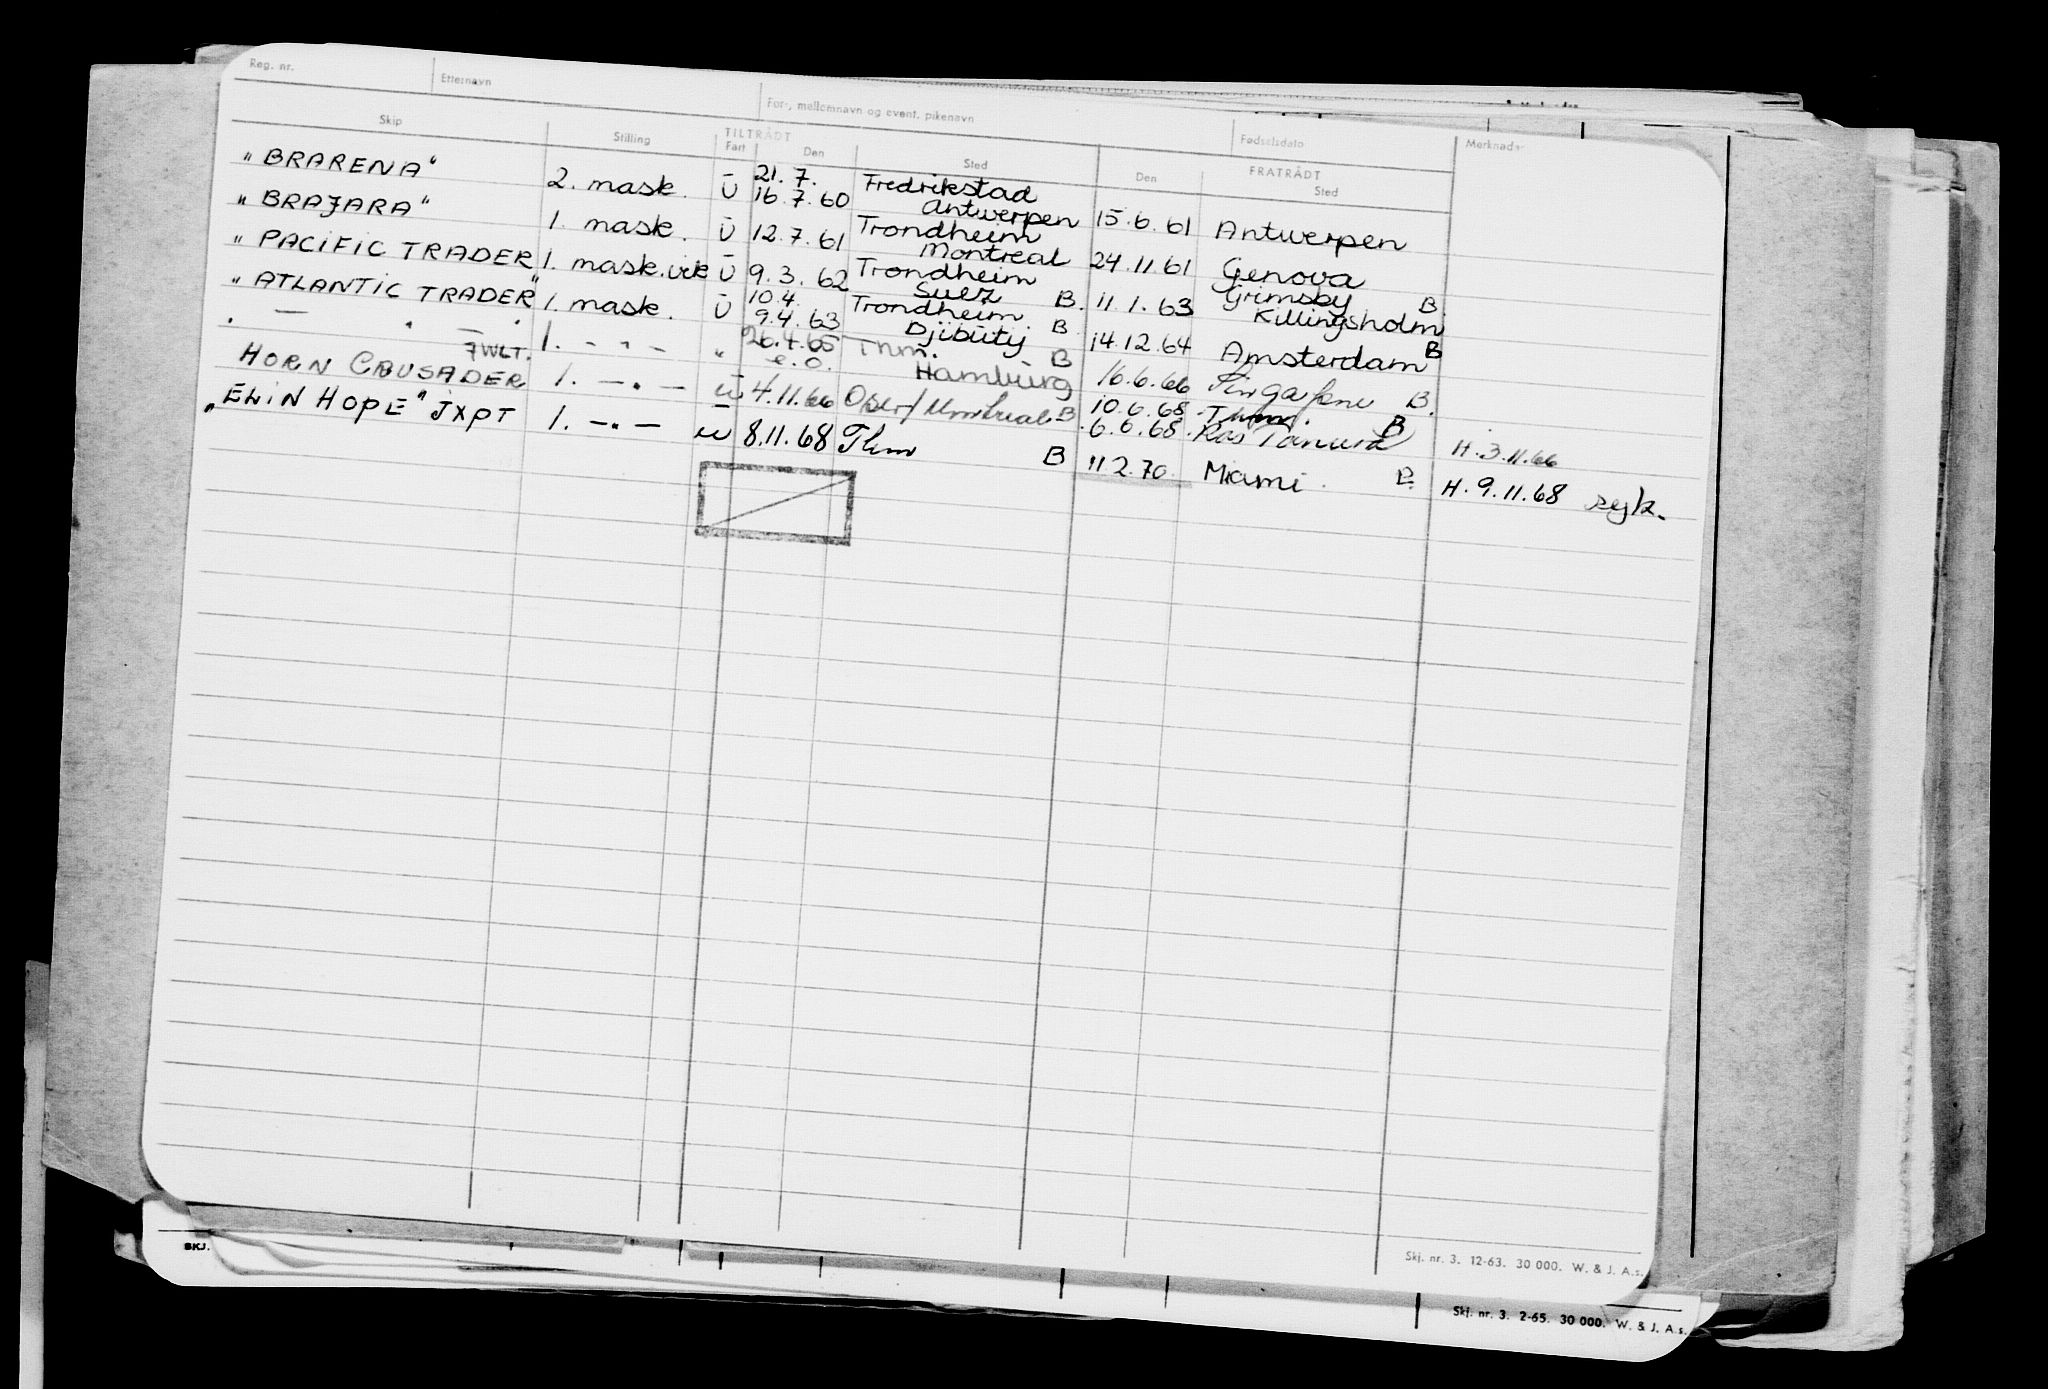 Reg. nr. Etternavn For-, mellemnavn og event. pikenavn Fødselsdato Merknader
Skip Stilling TILTRÅDT Fart Den Sted FRATRÅDT Den Sted
"BRARENA" 2. mask. U 21.7. 16.7.60 Fredrikstad Antwerpen 15.6.61 Antwerpen
"BRAJARA" 1. mask. U 12.7.61 Trondheim Montreal 24.11.61 Genova
"PACIFIC TRADER" 1. mask.vik U 9.3.62 Trondheim Suez B. 11.1.63 Grimsby Killingsholm B.
"ATLANTIC TRADER" 1. mask. U 10.4. 9.4.63 Trondheim Djibutij B 14.12.64 Amsterdam B
" — " — " 1. - " - " 26.4.65 e.o. Thm. Hamburg B 16.6.66 B.
HORN CRUSADER JWLT. 1. — " — u 4.11.66 B. 10.6.68 6.6.68 Thm. Ras Tanura B H. 3.11.66
"ELIN HOPE" JXPT 1. — " — u 8.11.68 Thm B 11.2.70 Miami B. H. 9.11.68 syk.
Skj. nr. 3. 12-63. 30 000. W. & J. A.s.
SKJ.
Skj. nr. 3. 2-65. 30 000. W. & J. A.s.